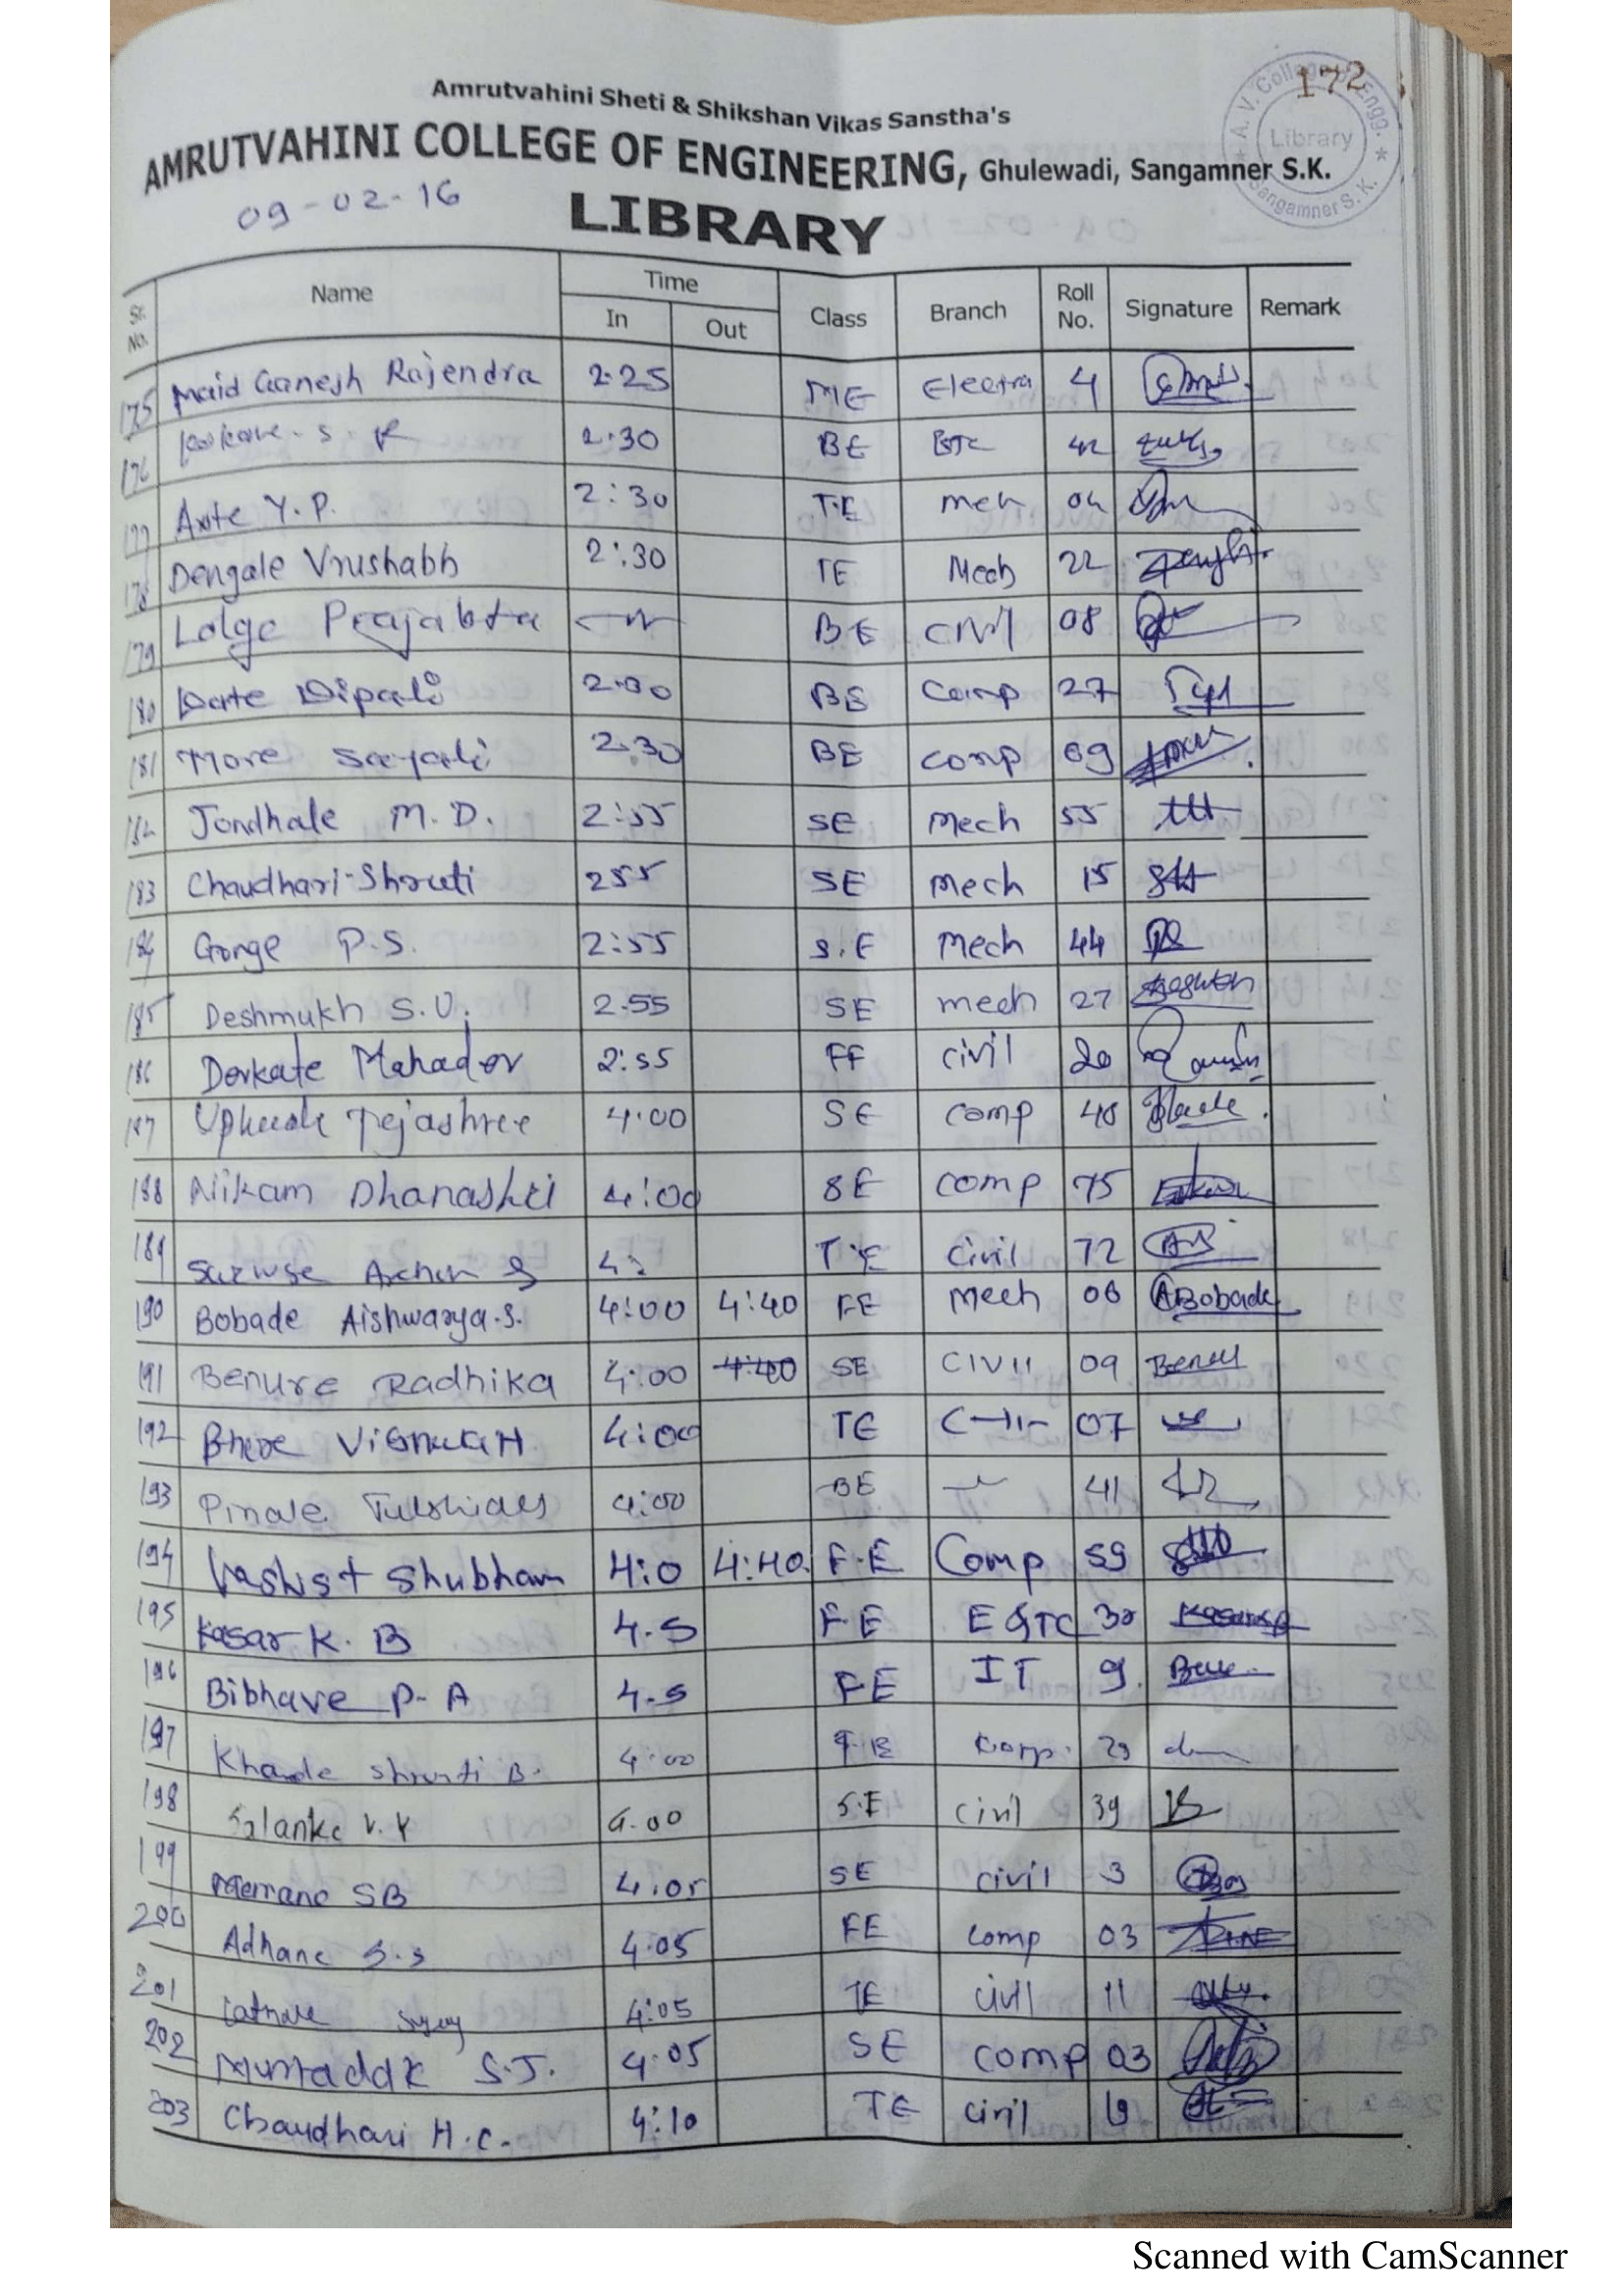 172
A. V. College of Engg. * Sangamner S.K. *
Library
Amrutvahini Sheti & Shikshan Vikas Sanstha's
AMRUTVAHINI COLLEGE OF ENGINEERING, Ghulewadi, Sangamner S.K.
09-02-16
LIBRARY
Sr. No. Name Time In Out Class Branch Roll No. Signature Remark
175 Maid Ganesh Rajendra 2.25 ME Electra 4
176 2:30 BE 42
177 Axte Y.P. 2:30 T.E Mech 04
178 Dengale Vrushabh 2:30 TE Mech 22
179 Lolge Prajakta BE Civil 08
180 Date Dipali 2:30 BE Comp 27
181 More Sayali 2:30 BE comp 69
182 Jondhale M.D. 2:55 SE Mech 55
183 Chaudhari Shruti 255 SE Mech 15
184 Gorge P.S. 2:55 S.E Mech 44
185 Deshmukh S.U. 2.55 SE mech 27
186 Derkate Mahadev 2:55 FF civil 20
187 Tejashree 4.00 SE comp 48
188 Nikam Dhanashri 4:00 SE comp 75
189 4: T.E Civil 72
190 Bobade Aishwarya.S. 4:00 4:40 FE Mech 06 ABobade
191 Benure Radhika 4:00 4:40 SE CIVIL 09
192 4:00 TE 07
193 Pinale 4:00 BE 41
194 Vashist Shubham 4:0 4:40 F.E Comp 59
195 Kasar K. B 4.5 F.E E&TC 30
196 Bibhave P. A 4.5 FE IT 9.
197 Khande Shruti B. 4:00 29
198 Salanke V. Y 4.00 S.E Civil 39
199 SB 4:05 SE civil 3
200 Adhane S.S 4.05 FE Comp 03
201 4:05 TE Civil 11
202 S.J. 4.05 SE comp 03
203 Chaudhari H.C. 4:10 TE Civil
Scanned with CamScanner